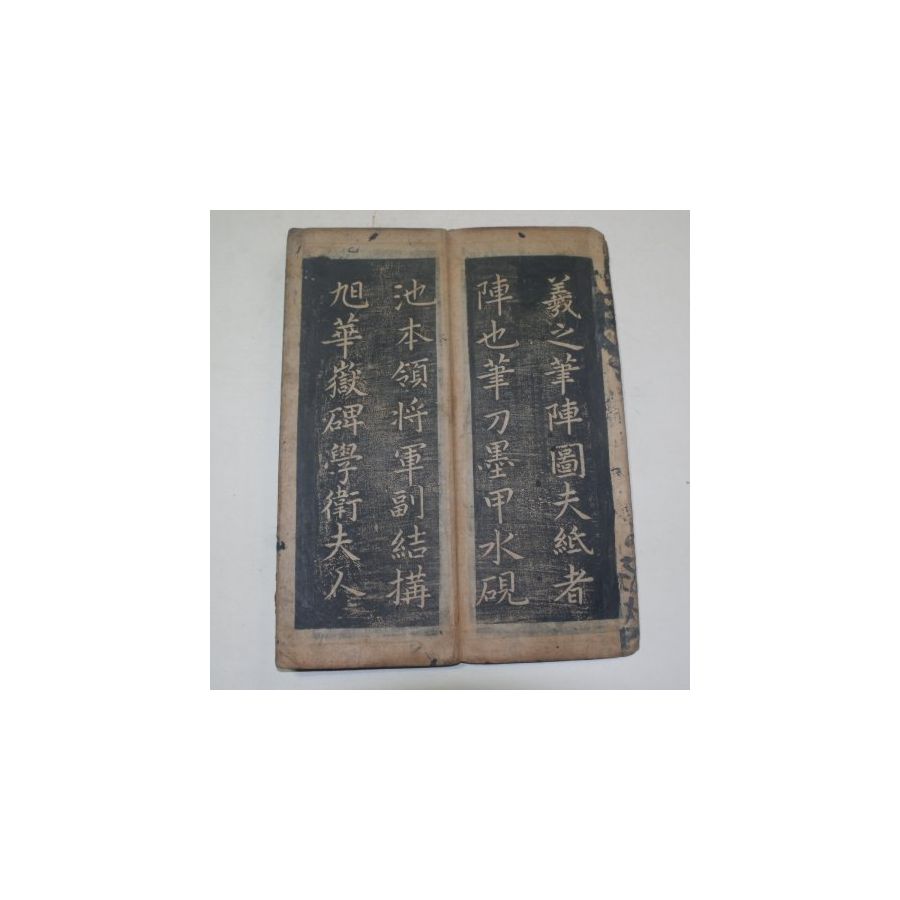 羲之筆陣圖夫紙者
陣也筆刀墨甲水硯
池本領将軍副結搆
旭華嶽碑學衛夫人